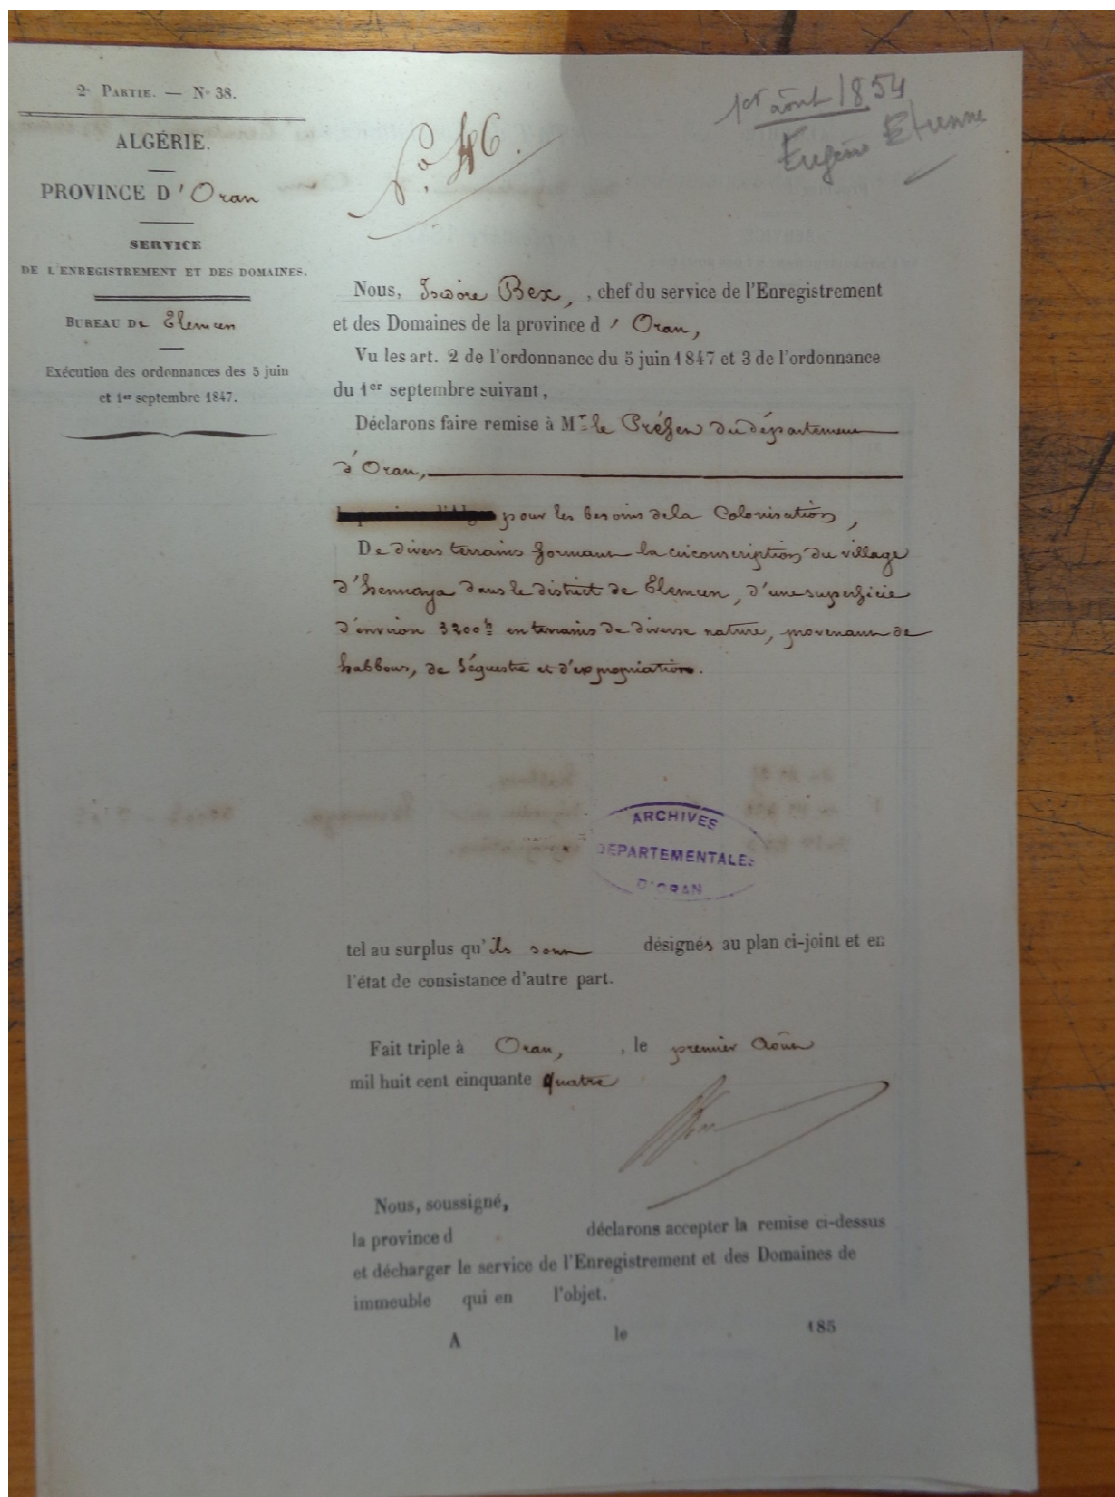 2e PARTIE. — N° 38.
ALGÉRIE.
PROVINCE D'Oran
SERVICE
DE L'ENREGISTREMENT ET DES DOMAINES.
BUREAU DE Tlemcen
Exécution des ordonnances des 5 juin
et 1er septembre 1847.
46.
1er août 1854
Eugène Etienne
Nous, Isidore Bex, , chef du service de l'Enregistrement
et des Domaines de la province d'Oran,
Vu les art. 2 de l'ordonnance du 5 juin 1847 et 3 de l'ordonnance
du 1er septembre suivant,
Déclarons faire remise à Mr le Préfet du département
d'Oran,
pour les besoins de la Colonisation,
De divers terrains formant la circonscription du village
d'hennaya dans le district de Tlemcen, d'une superficie
d'environ 3200h en terrains de diverse nature, provenant de
habbous, de séquestre et d'expropriation.
ARCHIVES
DÉPARTEMENTALES
D'ORAN
tel au surplus qu'ils sont désignés au plan ci-joint et en
l'état de consistance d'autre part.
Fait triple à Oran, , le premier Août
mil huit cent cinquante quatre
Nous, soussigné,
la province d déclarons accepter la remise ci-dessus
et décharger le service de l'Enregistrement et des Domaines de
immeuble qui en l'objet.
A le 185